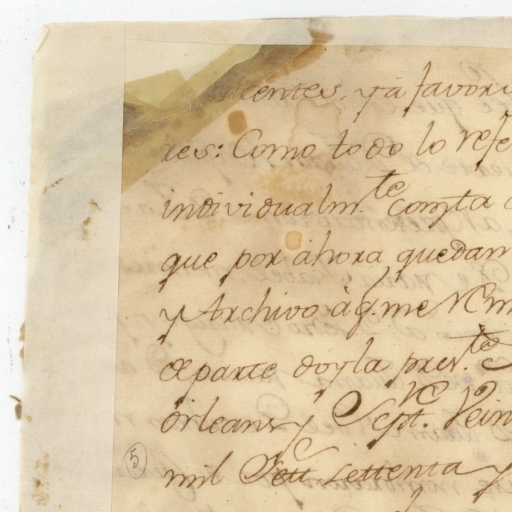 centes, y à favor
res: Como todo lo refe
individualm.te consta
que por ahora quedan
y Archivo à q. me
de parte doy la pres.te
Orleans y Sept.re Vein
mil Sett.s settenta y
5